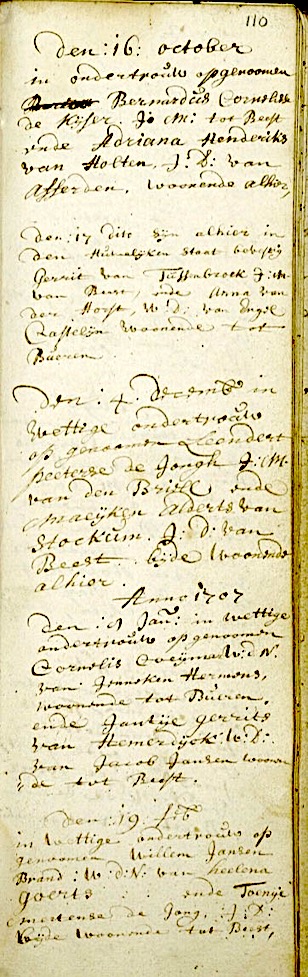 110
Den: 16: october
in ondertrouw opgenoomen
Bernardus Cornelisse
de Kijser. J: M: tot Beest
ende Adriana Henderiks
van Holten, J. D: van
Asserden, woonende alhier,
Den: 17 dito Sijn alhier in
den Huwelijken Staat bevesti
Gerrit van Tussenbroek J: M:
van Buer, ende Anna van
der Horst, W: D: van Engel
Castelijn woonende tot
Bueren
Den: 4: Decemb in
Wettige ondertrouw
op genoomen Leendert
peeterse de Jongh J: M.
van den Briell ende
Maeijken Alderts van
Stockum. J: D: van
Beest. bijde woonende
alhier.
Anno 1707
Den: 9 Jan: in wettige
ondertrouw op genoomen
Cornelis W: d: N:
van Jenneken Hermens,
woonende tot Bueren,
ende Jantije gerrits
van Hemerdijck W: D:
van Jacob Jansen woonen
de tot Beest.
Den: 19: feb
in Wettige ondertrouw op
genoomen Willem Jansen
Brand: W: d: N: van heelena
goerts ende Toentje
mertense de Jong, : J: D:
beijde woonende tot Beest,